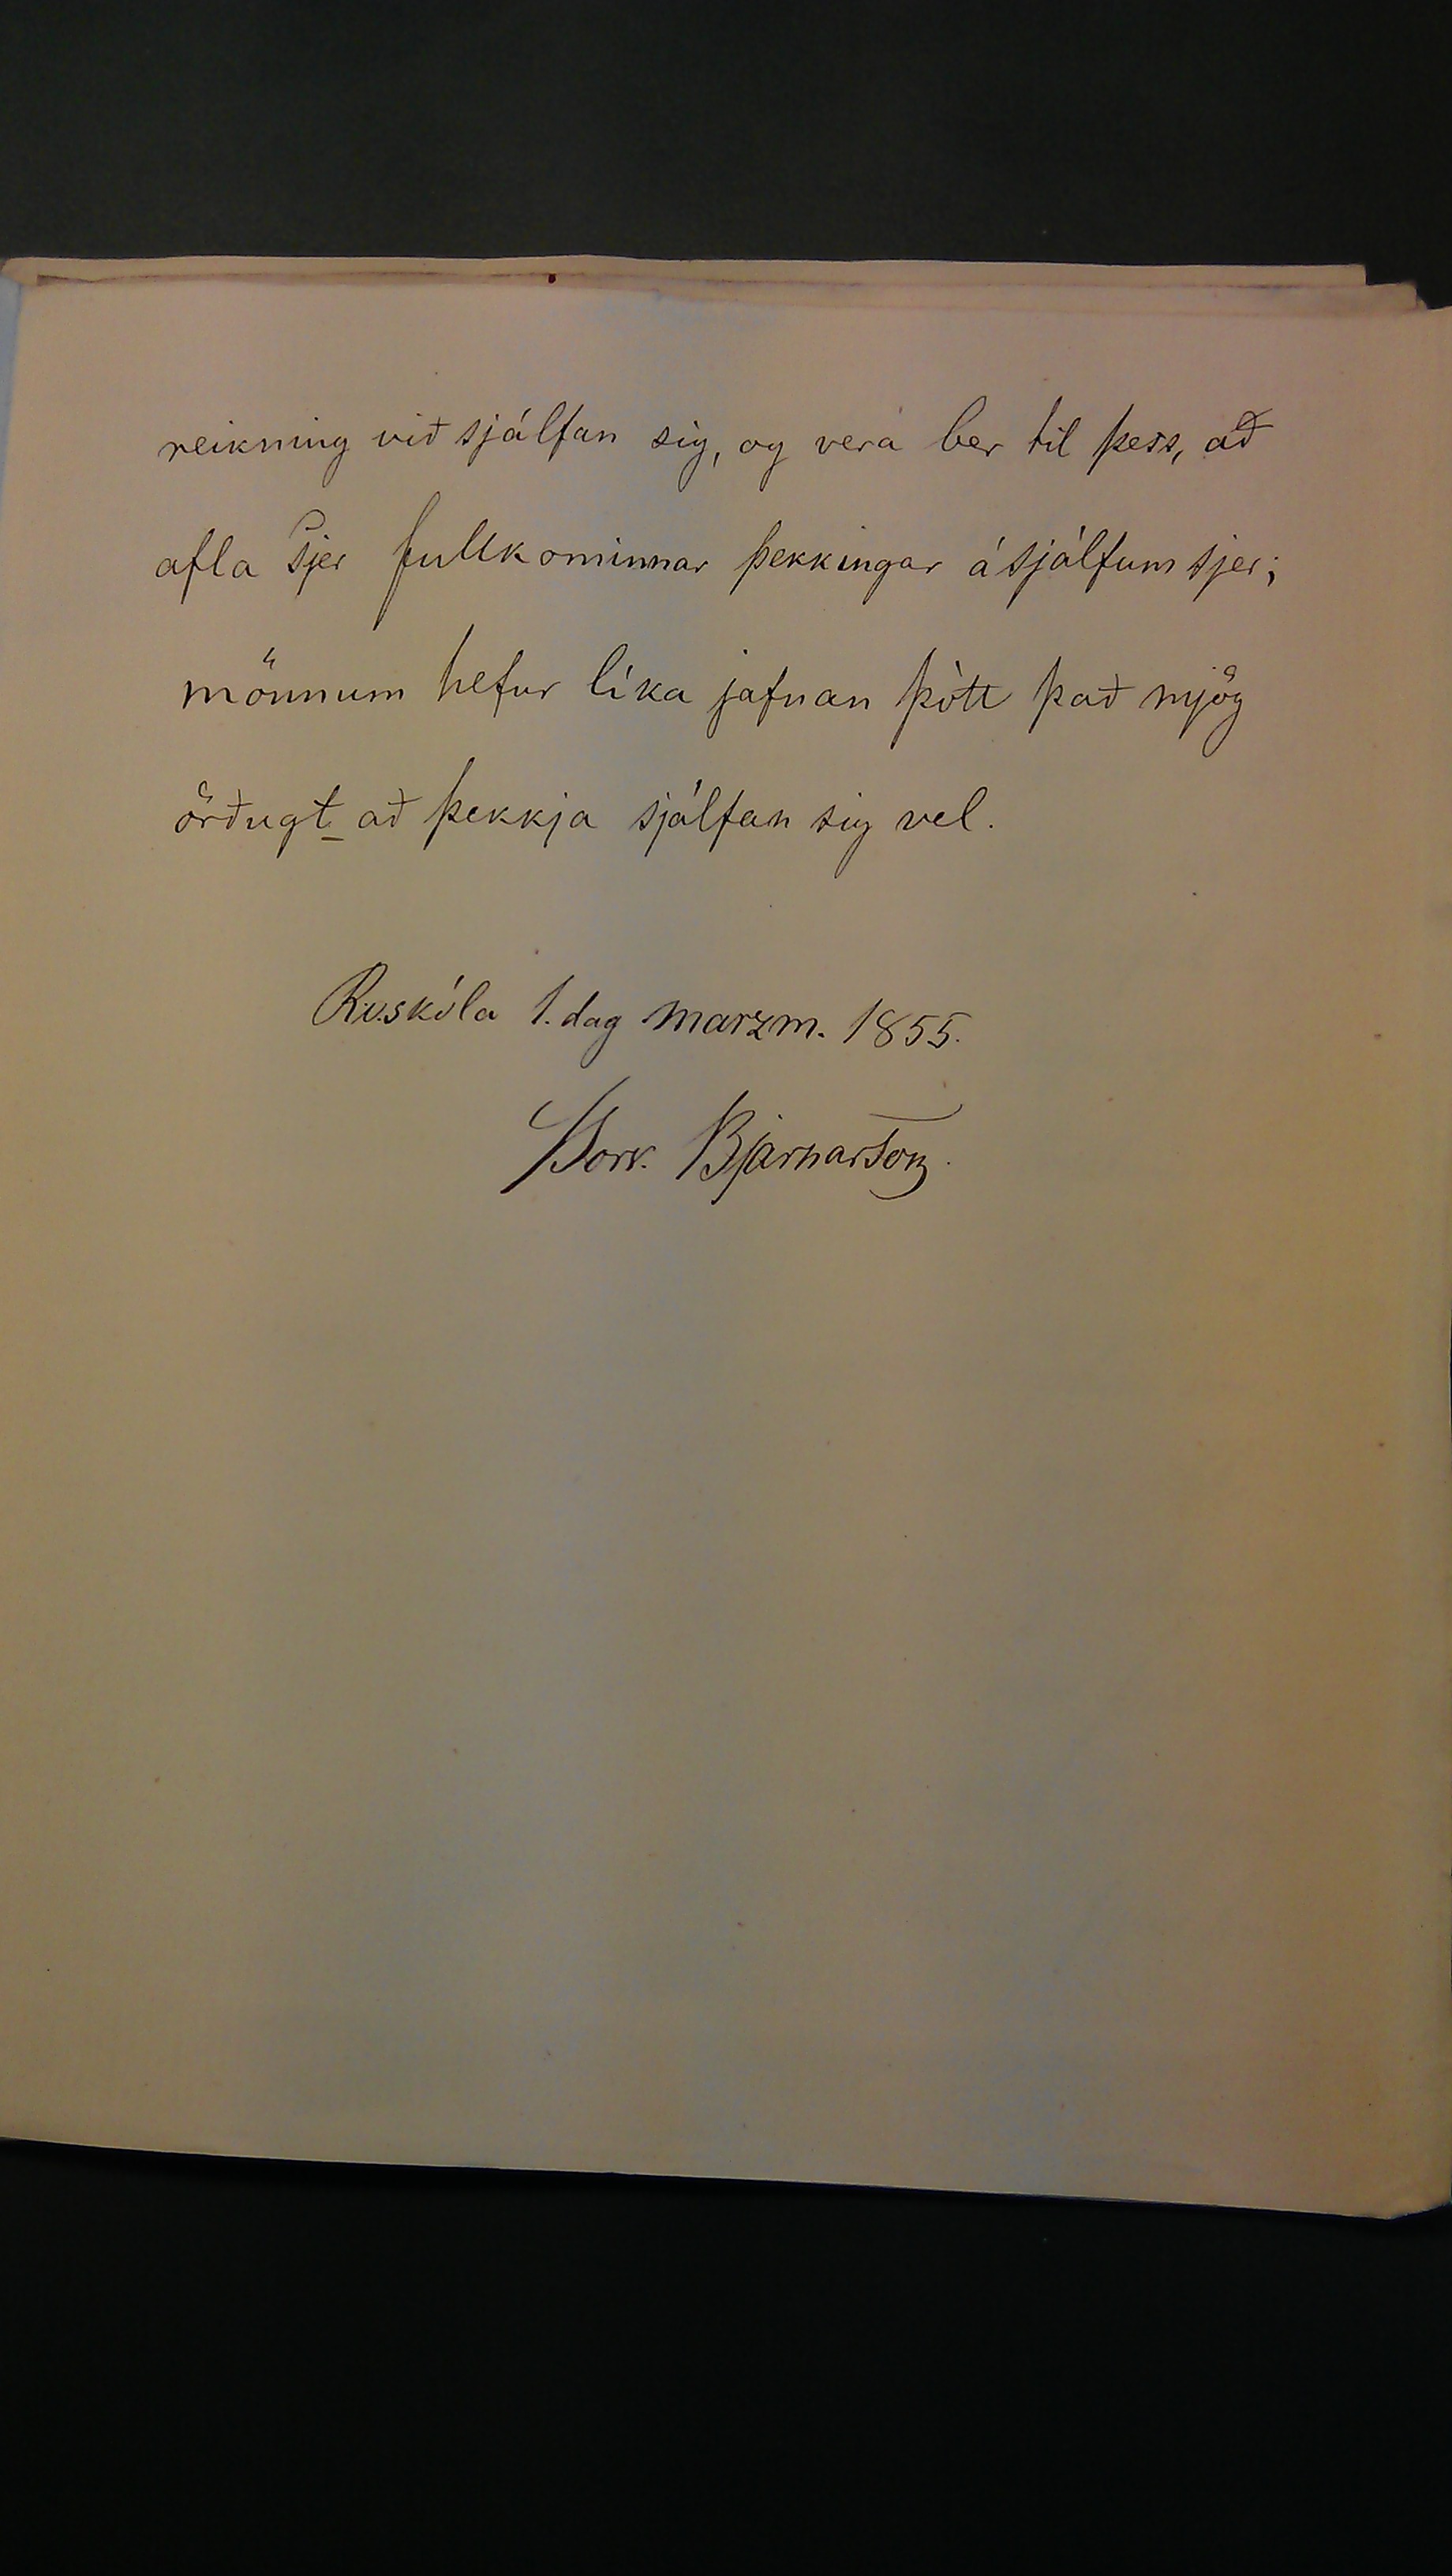 reikning við sjálfan sig, og vera ber til þess, að
afla sjer fullkominnar þekkingar á sjálfum sjer;
mönnum hefur líka jafnan þótt það mjög
örðugt að þekkja sjálfan sig vel.
Rv.skóla 1. dag marzm. 1855.
Þork. Bjarnarson.